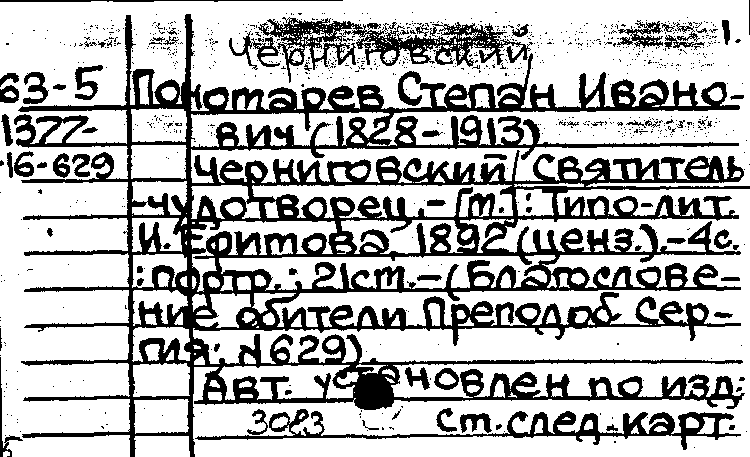 Черниговский 1.
63-5 Пономарев Степан Ивано-
1377- вич (1828-1913)
-16-629 Черниговский святитель
-чудотворец.-[М.]: Типо-лит.
И. Ефимова, 1892 (ценз.).-4с.
: портр.; 21см.-(Благослове-
ние обители Преподоб Сер-
гия; N629).
Авт. установлен по изд:
3083 см. след. карт.